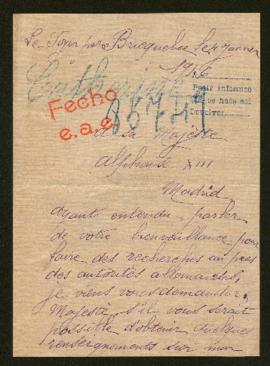 Bricquebec le 7 Janvier
1916
Pedir informes
Fecho
e.a.e
a sa Majesté
Alphonse XIII
Madrid
ayant entendu parler
de votre bienveillance pour
faire des recherches au près
des autorités allemandes,
je viens vous demander,
Majesté, s'il vous serait
possible d'obtenir quelques
renseignements sur mon